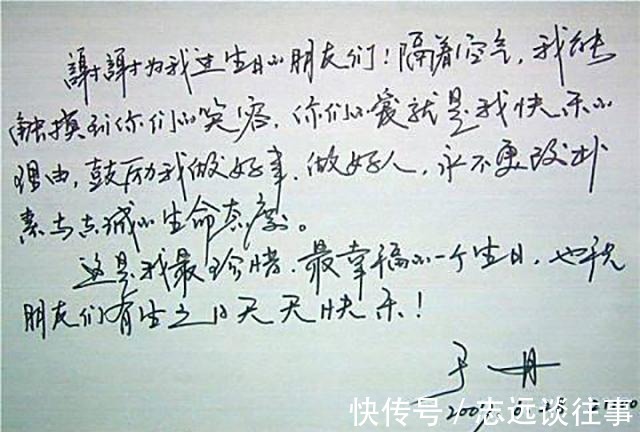 謝謝为我过生日的朋友们！隔着空气，我能
触摸到你们的笑容，你们的爱就是我快乐的
理由，鼓励我做好事、做好人，永不更改朴
素与真诚的生命态度。
这是我最珍惜、最幸福的一个生日，也祝
朋友们有生之日天天快乐！
于丹
2007.6.28
快传号/志远谈往事